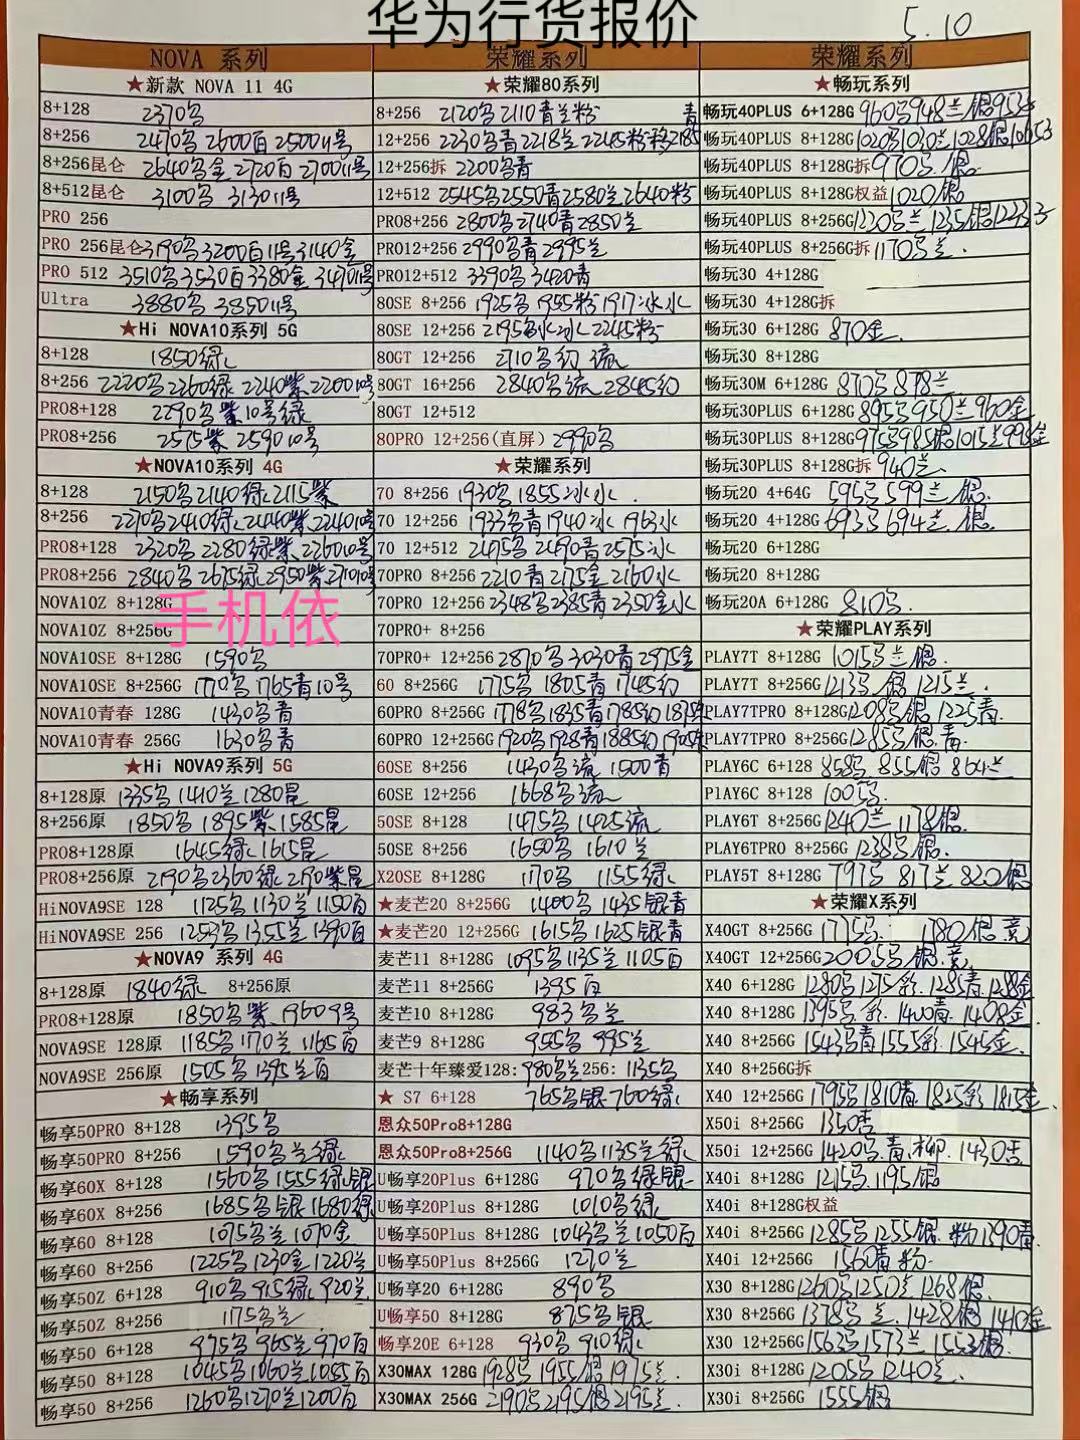 华为行货报价
5.10
NOVA 系列
★新款 NOVA 11 4G
8+128 2370乌
8+256 2470乌 2600百 2500 11号
8+256昆仑 2640乌金 2720百 2700 11号
8+512昆仑 3100乌 3130 11号
PRO 256
PRO 256昆仑 3190乌 3200百11号 3140金
PRO 512 3510乌 3530百 3380金 3490 11号
Ultra 3880乌 3850 11号
★Hi NOVA10系列 5G
8+128 1850绿
8+256 2220乌 2260绿 2240紫 2200 10号
PRO8+128 2290乌紫10号绿
PRO8+256 2575紫 2590 10号
★NOVA10系列 4G
8+128 2150乌 2140绿 2115紫
8+256 2270乌 2410绿 2440紫 2240 10号
PRO8+128 2320乌 2280绿紫 2260 10号
PRO8+256 2840乌 2675绿 2950紫 2710 10号
NOVA10Z 8+128G
手机依
NOVA10Z 8+256G
NOVA10SE 8+128G 1590乌
NOVA10SE 8+256G 1770乌 1765青10号
NOVA10青春 128G 1430乌青
NOVA10青春 256G 1630乌青
★Hi NOVA9系列 5G
8+128原 1335乌 1410兰 1280星
8+256原 1850乌 1895紫 1585星
PRO8+128原 1645绿 1615星
PRO8+256原 2190乌 2360绿 2190紫星
HiNOVA9SE 128 1125乌 1130兰 1150百
HiNOVA9SE 256 1253乌 1355兰 1390百
★NOVA9 系列 4G
8+128原 1840绿 8+256原
PRO8+128原 1850乌紫 1960 9号
NOVA9SE 128原 1185乌 1170兰 1165百
NOVA9SE 256原 1505乌 1395兰百
★畅享系列
畅享50PRO 8+128 1395乌
畅享50PRO 8+256 1590乌兰绿
畅享60X 8+128 1560乌 1555绿银
畅享60X 8+256 1685乌银 1680绿
畅享60 8+128 1075乌兰 1070金
畅享60 8+256 1225乌 1230金 1220兰
畅享50Z 6+128 910乌 915绿 920兰
畅享50Z 8+256 1175乌兰
畅享50 6+128 975乌 965兰 970百
畅享50 8+128 1045乌 1060兰 1055百
畅享50 8+256 1260乌 1270兰 1200百
荣耀系列
★荣耀80系列
8+256 2120乌 2110青兰粉 青
12+256 2230乌青 2218兰 2245粉 2185
12+256拆 2200乌青
12+512 2545乌 2550青 2580兰 2640粉
PRO8+256 2800乌 2740青 2850兰
PRO12+256 2990乌青 2995兰
PRO12+512 3390乌 3420青
80SE 8+256 1925乌 1955粉 1917冰水
80SE 12+256 2195乌冰水 2245粉
80GT 12+256 2710乌幻 流
80GT 16+256 2840乌流 2845幻
80GT 12+512
80PRO 12+256(直屏) 2990乌
★荣耀系列
70 8+256 1930乌 1855冰水
70 12+256 1933乌青 1940冰 1963水
70 12+512 2475乌 2490青 2575冰
70PRO 8+256 2210青 2175金 2160水
70PRO 12+256 2348乌 2385青 2350金水
70PRO+ 8+256
70PRO+ 12+256 2870乌 3030青 2975金
60 8+256G 1775乌 1805青 1745幻
60PRO 8+256G 1778乌 1835青 1785幻 1815
60PRO 12+256G 1920乌 1928青 1885幻 1905
60SE 8+256 1430乌流 1500青
60SE 12+256 1668乌流
50SE 8+128 1475乌 1425流
50SE 8+256 1650乌 1610兰
X20SE 8+128G 1170乌 1155绿
★麦芒20 8+256G 1400乌 1435银青
★麦芒20 12+256G 1615乌 1625银青
麦芒11 8+128G 1095乌 1135兰 1105百
麦芒11 8+256G 1395百
麦芒10 8+128G 983乌兰
麦芒9 8+128G 955乌 995兰
麦芒十年臻爱128: 980乌兰 256: 1135乌
★ S7 6+128 765乌银 760绿
恩众50Pro8+128G
恩众50Pro8+256G 1140乌 1135兰绿
U畅享20Plus 6+128G 970乌绿银
U畅享20Plus 8+128G 1010乌绿
U畅享50Plus 8+128G 1043乌兰 1050百
U畅享50Plus 8+256G 1270兰
U畅享20 6+128G 890乌
U畅享50 8+128G 875乌银
畅享20E 6+128 930乌 910绿
X30MAX 128G 1928乌 1955银 1975兰
X30MAX 256G 2190乌 2195银 2195兰
荣耀系列
★畅玩系列
畅玩40PLUS 6+128G 960乌 948兰 银953
畅玩40PLUS 8+128G 1020乌 1030兰 1028银
畅玩40PLUS 8+128G拆 970乌 银
畅玩40PLUS 8+128G权益 1020银
畅玩40PLUS 8+256G 1220乌兰 1235银
畅玩40PLUS 8+256G拆 1170乌兰
畅玩30 4+128G
畅玩30 4+128G拆
畅玩30 6+128G 870金
畅玩30 8+128G
畅玩30M 6+128G 870乌 878兰
畅玩30PLUS 6+128G 895乌 950兰 960金
畅玩30PLUS 8+128G 975乌 985银 1015兰 998金
畅玩30PLUS 8+128G拆 940兰
畅玩20 4+64G 595乌 599兰 银
畅玩20 4+128G 693乌 694兰 银
畅玩20 6+128G
畅玩20 8+128G
畅玩20A 6+128G 810乌
★荣耀PLAY系列
PLAY7T 8+128G 1015乌兰 银
PLAY7T 8+256G 1213乌 银 1215兰
PLAY7TPRO 8+128G 1208乌银 1225青
PLAY7TPRO 8+256G 1285乌银 青
PLAY6C 6+128 858乌 855银 864兰
PlAY6C 8+128 1005乌
PLAY6T 8+256G 1240兰 1178银
PLAY6TPRO 8+256G 1238乌 银
PLAY5T 8+128G 797乌 817兰 820银
★荣耀X系列
X40GT 8+256G 1775乌 1780银 竞
X40GT 12+256G 2005乌银 竞
X40 6+128G 1280乌 1275彩 1285青 1288金
X40 8+128G 1395乌 彩 1400青 1408金
X40 8+256G 1543乌青 1555彩 1545金
X40 8+256G拆
X40 12+256G 1795乌 1810青 1825彩 1815金
X50i 8+256G 1350杏
X50i 12+256G 1420乌青 柳 1430杏
X40i 8+128G 1215乌 1195银
X40i 8+128G权益
X40i 8+256G 1285乌 1255银 粉 1290青
X40i 12+256G 1560青 粉
X30 8+128G 1260乌 1250兰 1268银
X30 8+256G 1378乌 兰 1428银 1410金
X30 12+256G 1563乌 1573兰 1553银
X30i 8+128G 1205乌 1240兰
X30i 8+256G 1555银